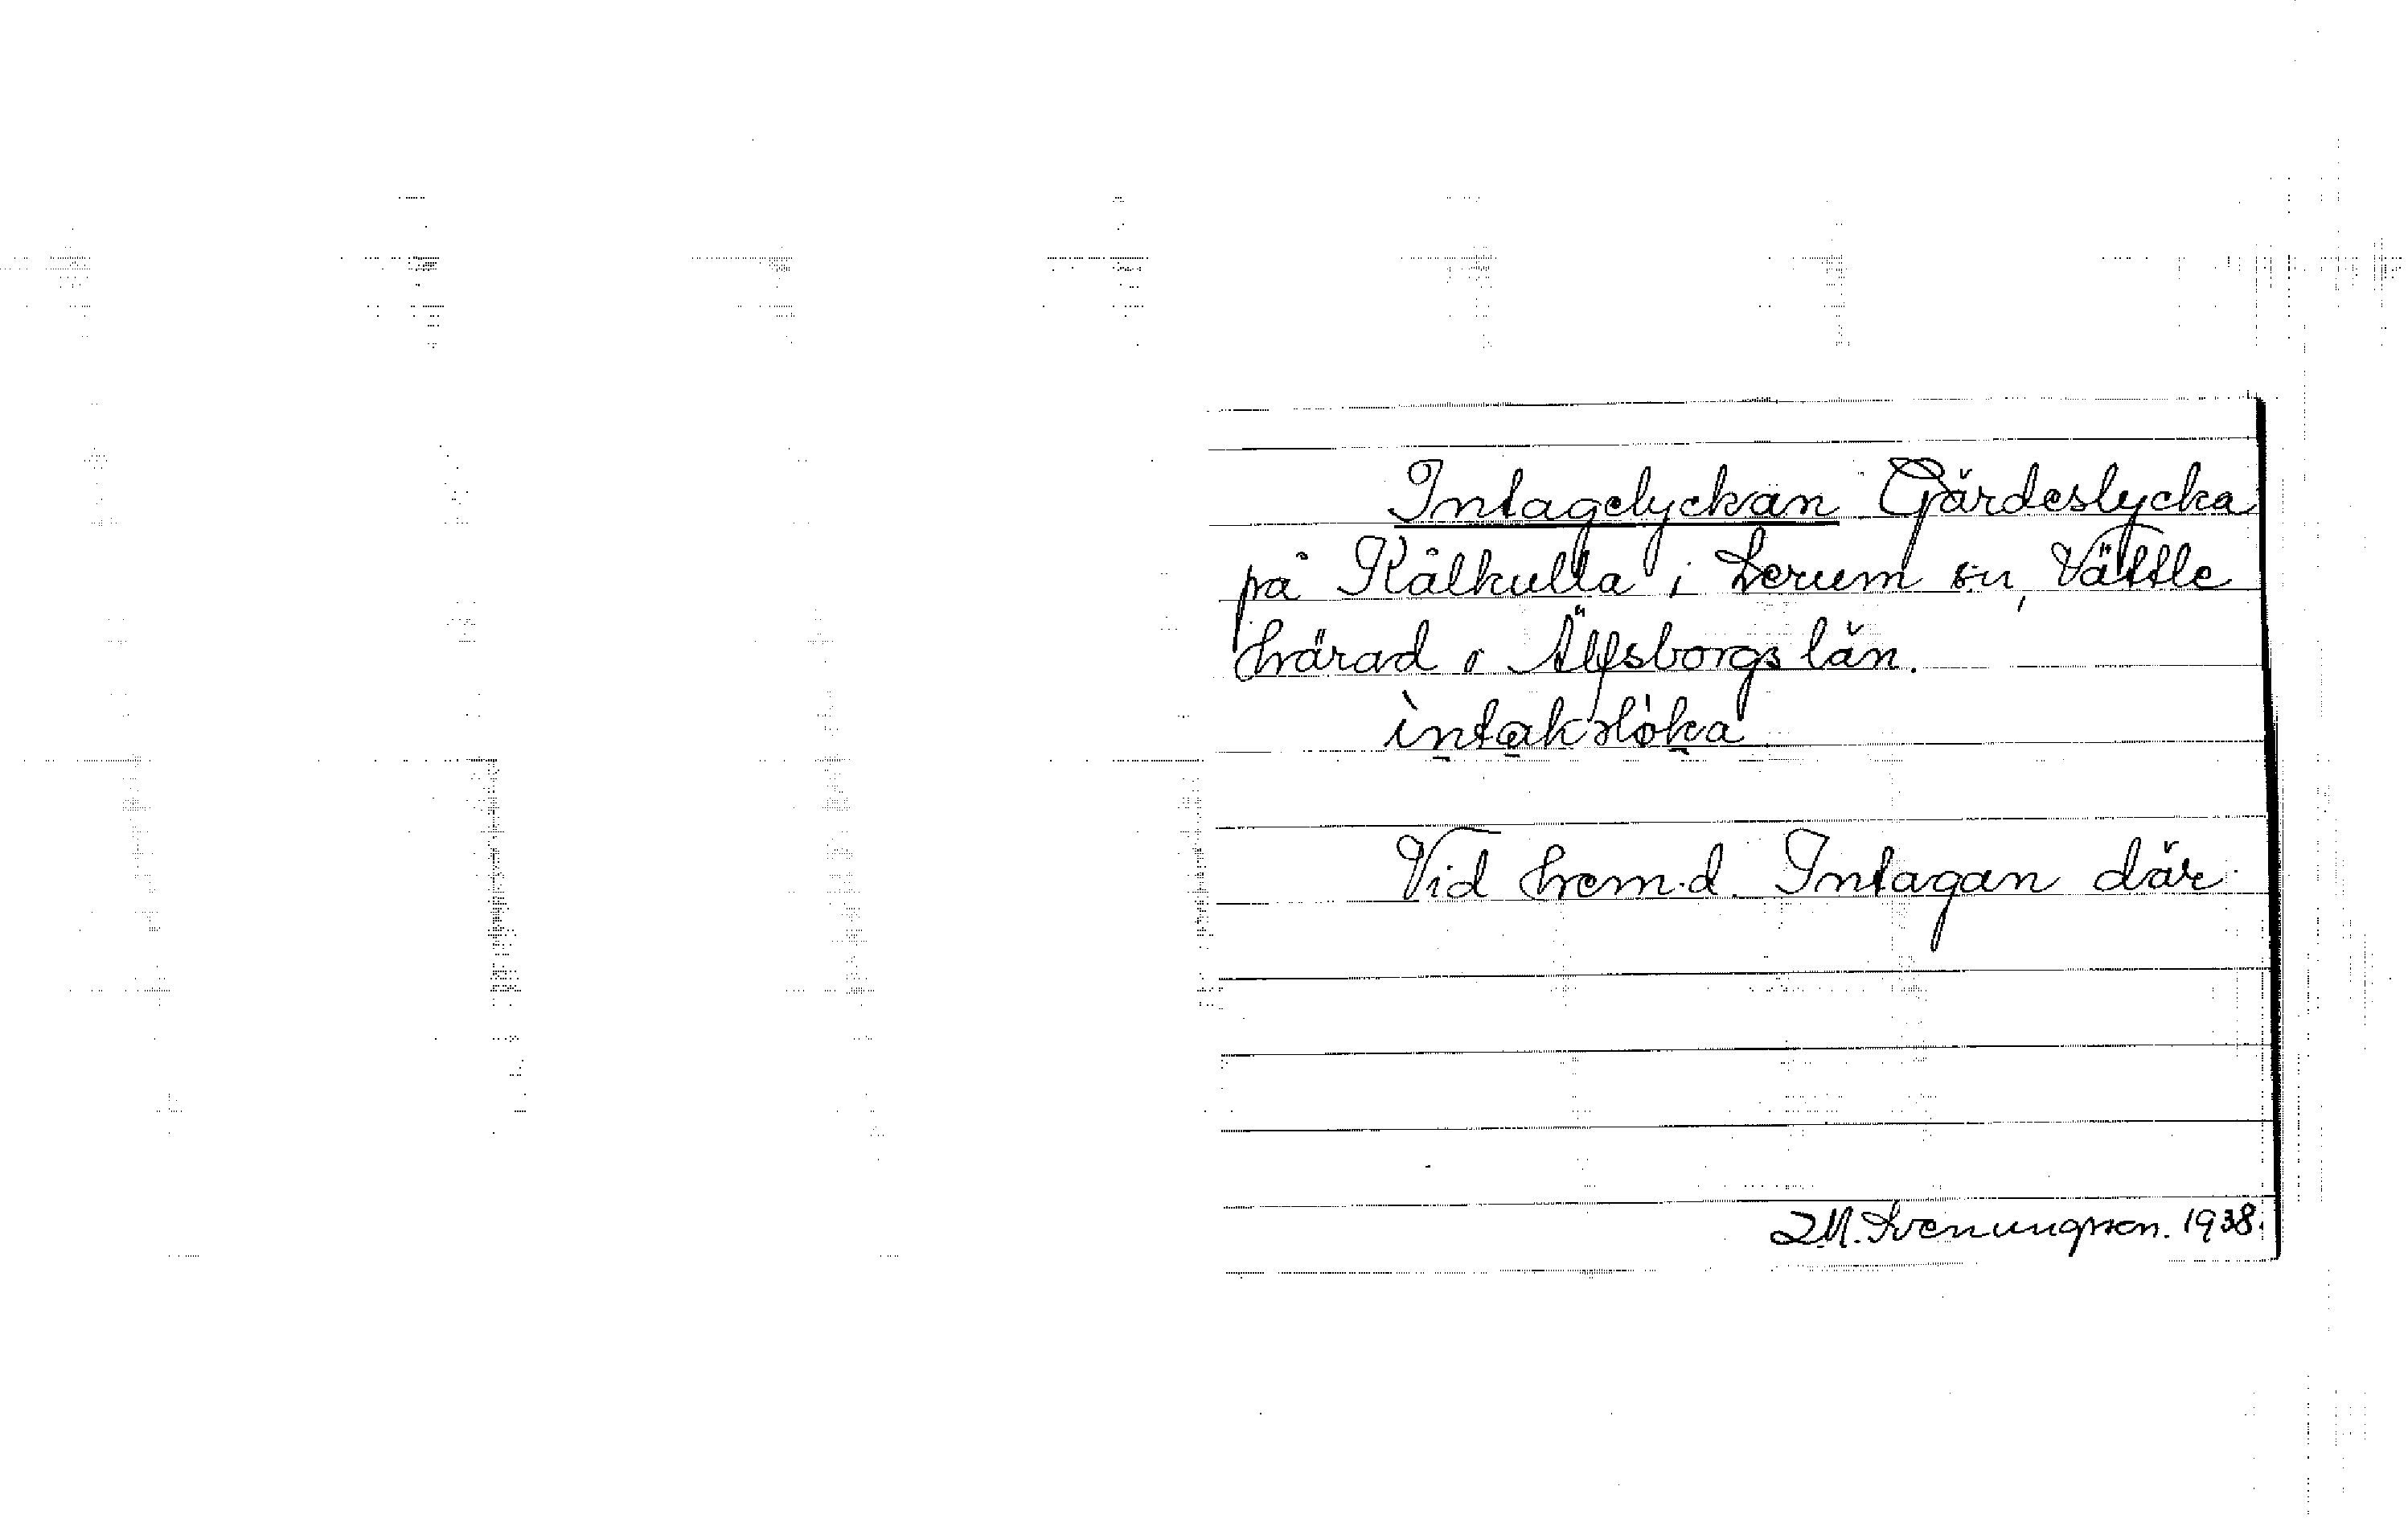 Intagelyckan Gärdeslycka
på Kålkulla i Lerum sn, Vättle
härad i Älfsborgs län.
ìntakslò̀ka
Vid hem.d. Intagan där
J.M. Svenungsson. 1938.